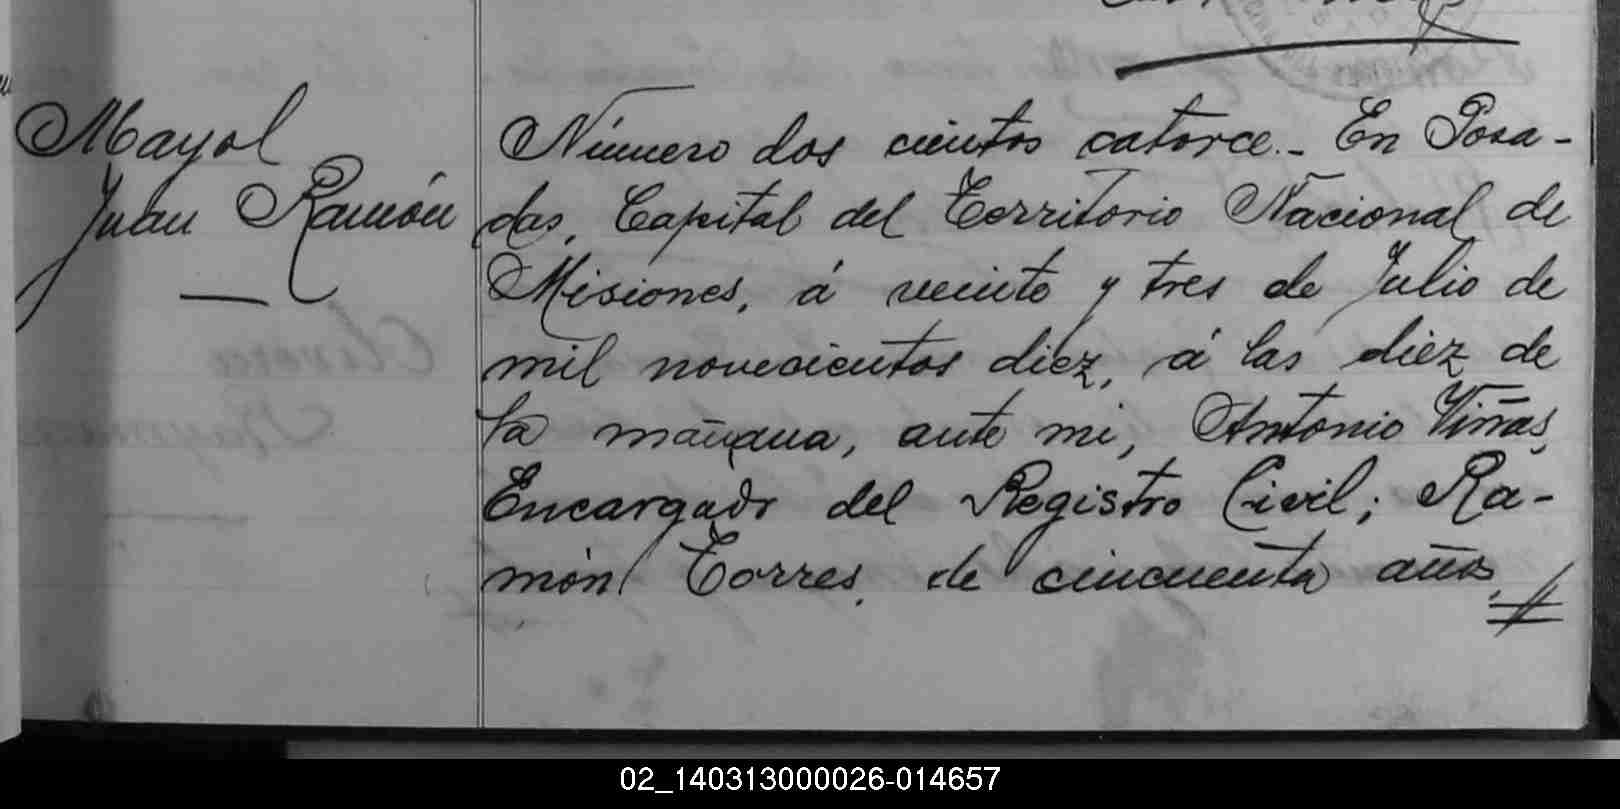 Mayol
Juan Ramón
Número dos cientos catorce.- En Posa-
das, Capital del Territorio Nacional de
Misiones, á veinte y tres de Julio de
mil novecientos diez, á las diez de
la mañana, ante mi, Antonio Viñas,
Encargado del Registro Civil; Ra-
món Torres, de cincuenta años,
02_140313000026-014657